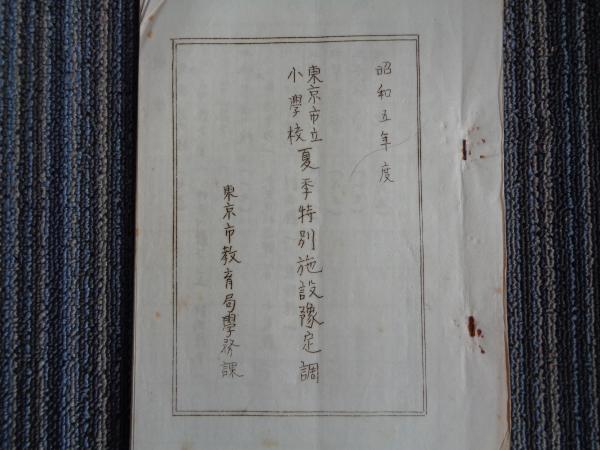 昭和五年度
東京市立小學校夏季特別施設豫定調
東京市教育局學務課